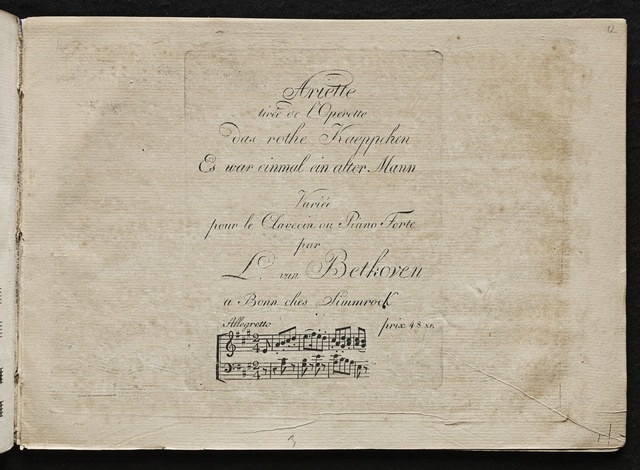 12
Ariette
tirée de l'Operette
das rothe Kaeppchen
Es war einmal ein alter Mann
Variée
pour le Clavecin ou Piano Forte
par
L. van Bethoven
a Bonn ches Simmrock
Allegretto
prix 48 xr.
2
4
2
4
3